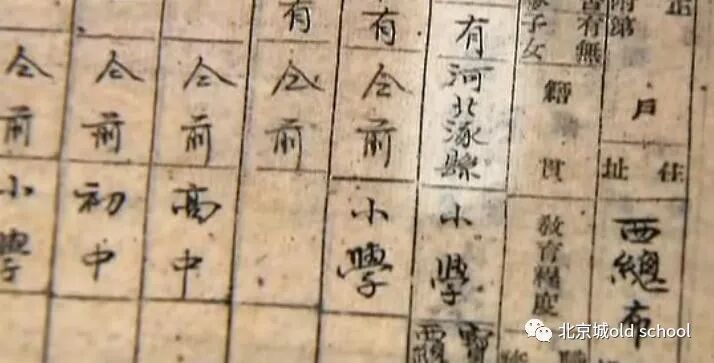 附第
住址
西總布
有無
子女
籍貫
教育程度
有
河北涿縣
小學
有
仝前
小學
有
仝前
仝前
高中
仝前
初中
仝前
小學
北京城old school